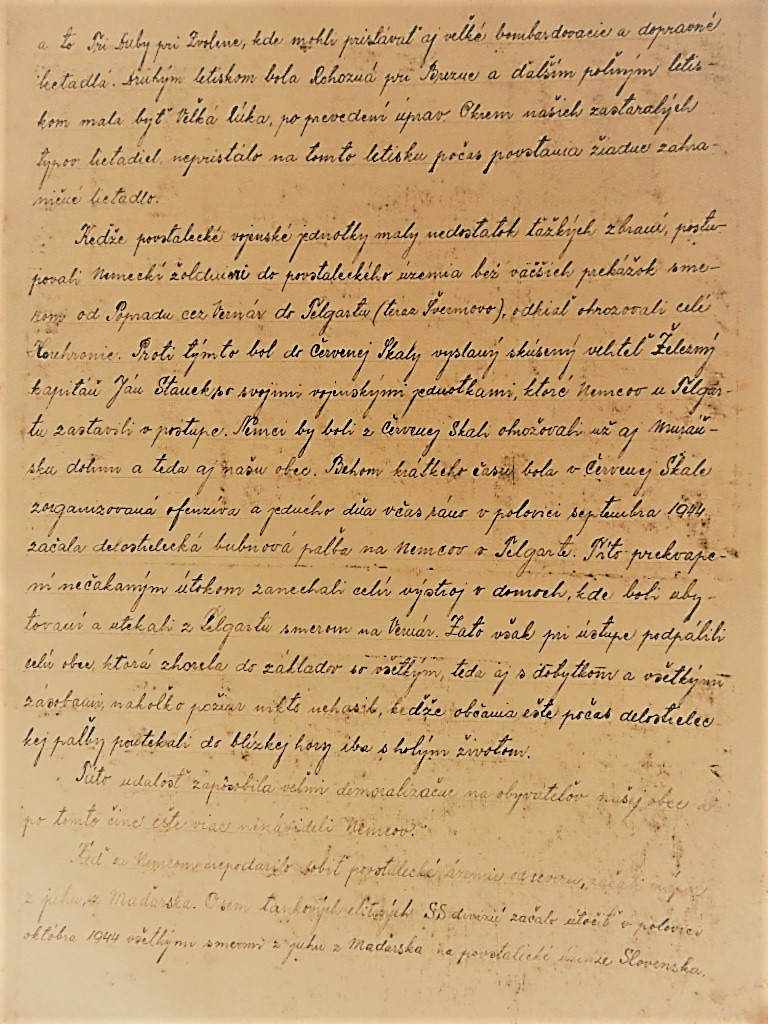 a to Tri Duby pri Zvolene, kde mohli pristávať aj veľké bombardovacie a dopravné
lietadlá. Druhým letiskom bola Rohozná pri Brezne a ďalším poľným letis-
kom mala byť Veľká lúka, po prevedení úprav. Okrem našich zastaralých
typov lietadiel, nepristálo na tomto letisku počas povstania žiadne zahra-
ničné lietadlo.
Kedže povstalecké vojenské jednotky maly nedostatok ťažkých zbraní, postu-
povali Nemeckí žoldneri do povstaleckého územia bez väčších prekážok sme-
rom od Popradu cez Vernár do Telgartu (teraz Švermovo), odkiaľ ohrozovali celé
Horehronie. Proti týmto bol do Červenej Skaly vyslaný skúsený veliteľ Železný
kapitáň Ján Stanek, so svojimi vojenskými jednotkami, ktoré Nemcov u Telgar-
tu zastavili v postupe. Nemci by boli z Červenej Skali ohrožovali už aj Muráň-
sku dolinu a teda aj našu obec. Behom krátkeho času bola v Červenej Skale
zorganizovaná ofenzíva a jedného dňa včas ráno v polovici septembra 1944
začala delostrelecká bubnová paľba na Nemcov v Telgarte. Títo prekvape-
ní nečakaným útokom zanechali celú výstroj v domoch, kde boli uby-
tovaní a utekali z Telgartu smerom na Vernár. Zato však pri ústupe podpálili
celú obec, ktorá zhorela do základov so všetkým, teda aj s dobytkom a všetkými
zásobami, nakoľko požiar nikto nehasil, kedže občania ešte počas delostrelec
kej paľby poutekali do blízkej hory iba s holým životom.
Táto udalosť zapôsobila veľmi demoralizačne na obyvateľov našej obce a
po tomto čine ešte viac nenávideli Nemcov.
Keď sa Nemcom nepodarilo dobiť povstalecké územie od severu, začali
z juhu, z Maďarska. Osem tankových elitných SS divízií začalo útočiť v polovici
októbra 1944 všetkými smermi z juhu z Maďarska na povstalecké územie Slovenska.